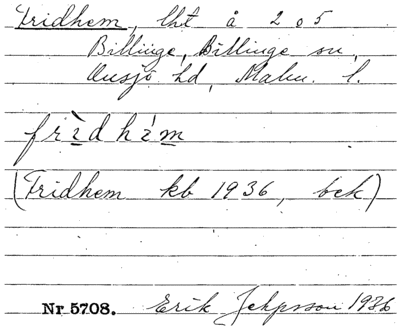 Fridhem, lht å 2 o 5
Billinge, Billinge sn,
Onsjö hd, Malm. l.
frìdhém
(Fridhem kb 1936, bek)
Nr 5708. Erik Jeppsson 1936